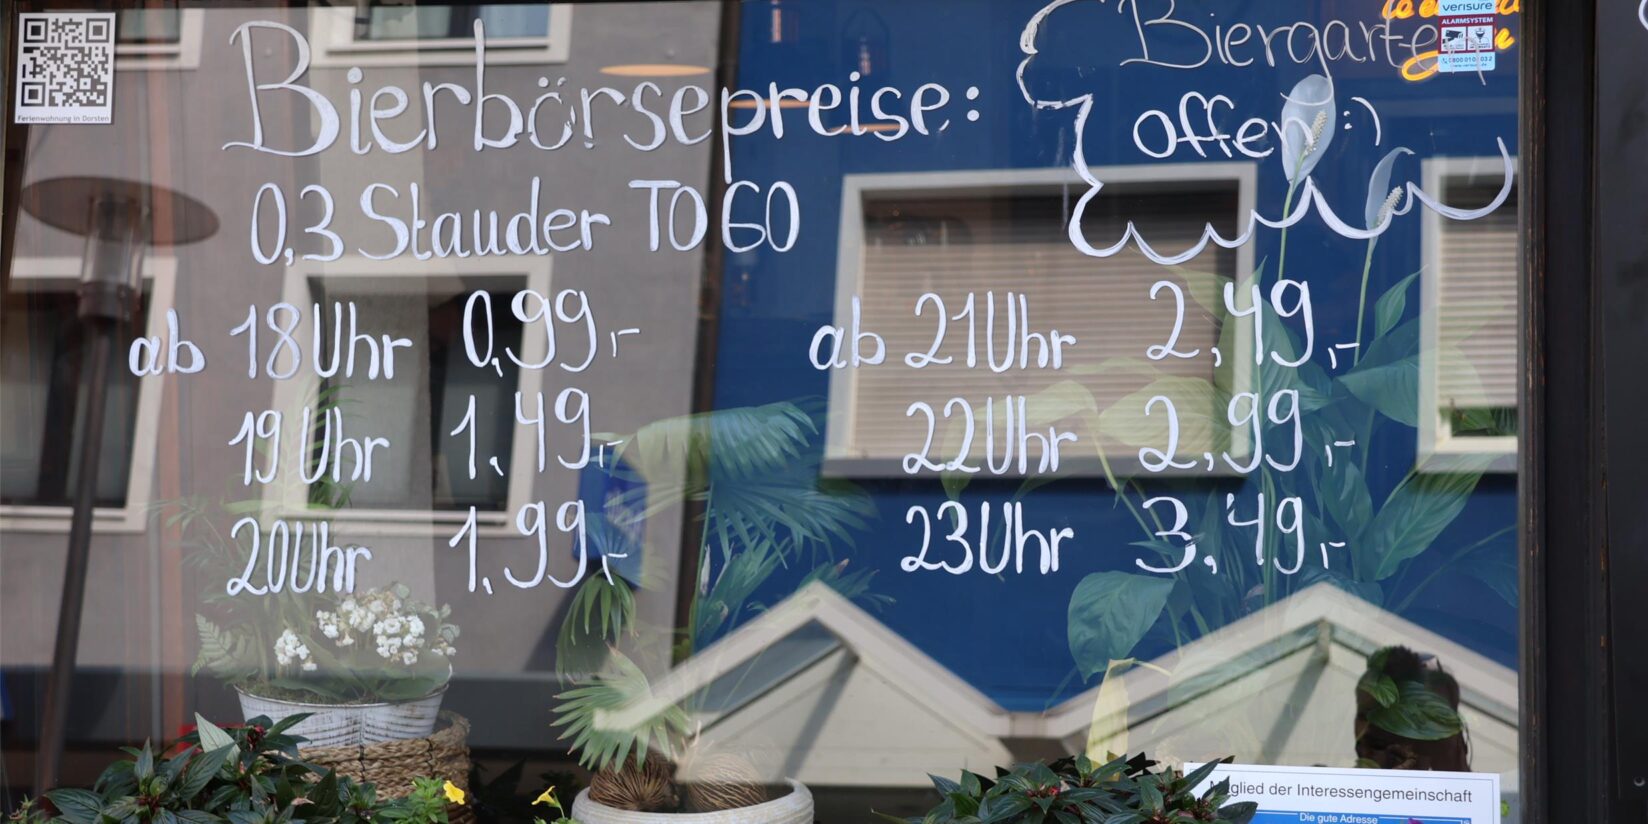 Bierbörsepreise:
0,3 Stauder TO GO
ab 18 Uhr 0,99,-
19 Uhr 1,49,-
20 Uhr 1,99,-
ab 21 Uhr 2,49,-
22 Uhr 2,99,-
23 Uhr 3,49,-
Biergarten
offen :)
Ferienwohnung in Dorsten
verisure
ALARMSYSTEM
Mitglied der Interessengemeinschaft
Die gute Adresse